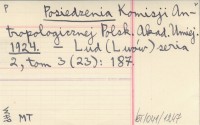 P
Posiedzenia Komisji An-
tropologicznej Polsk. Akad. Umiej.
1924. = Lud (Lwów) seria
2, tom 3 (23): 187.
MT